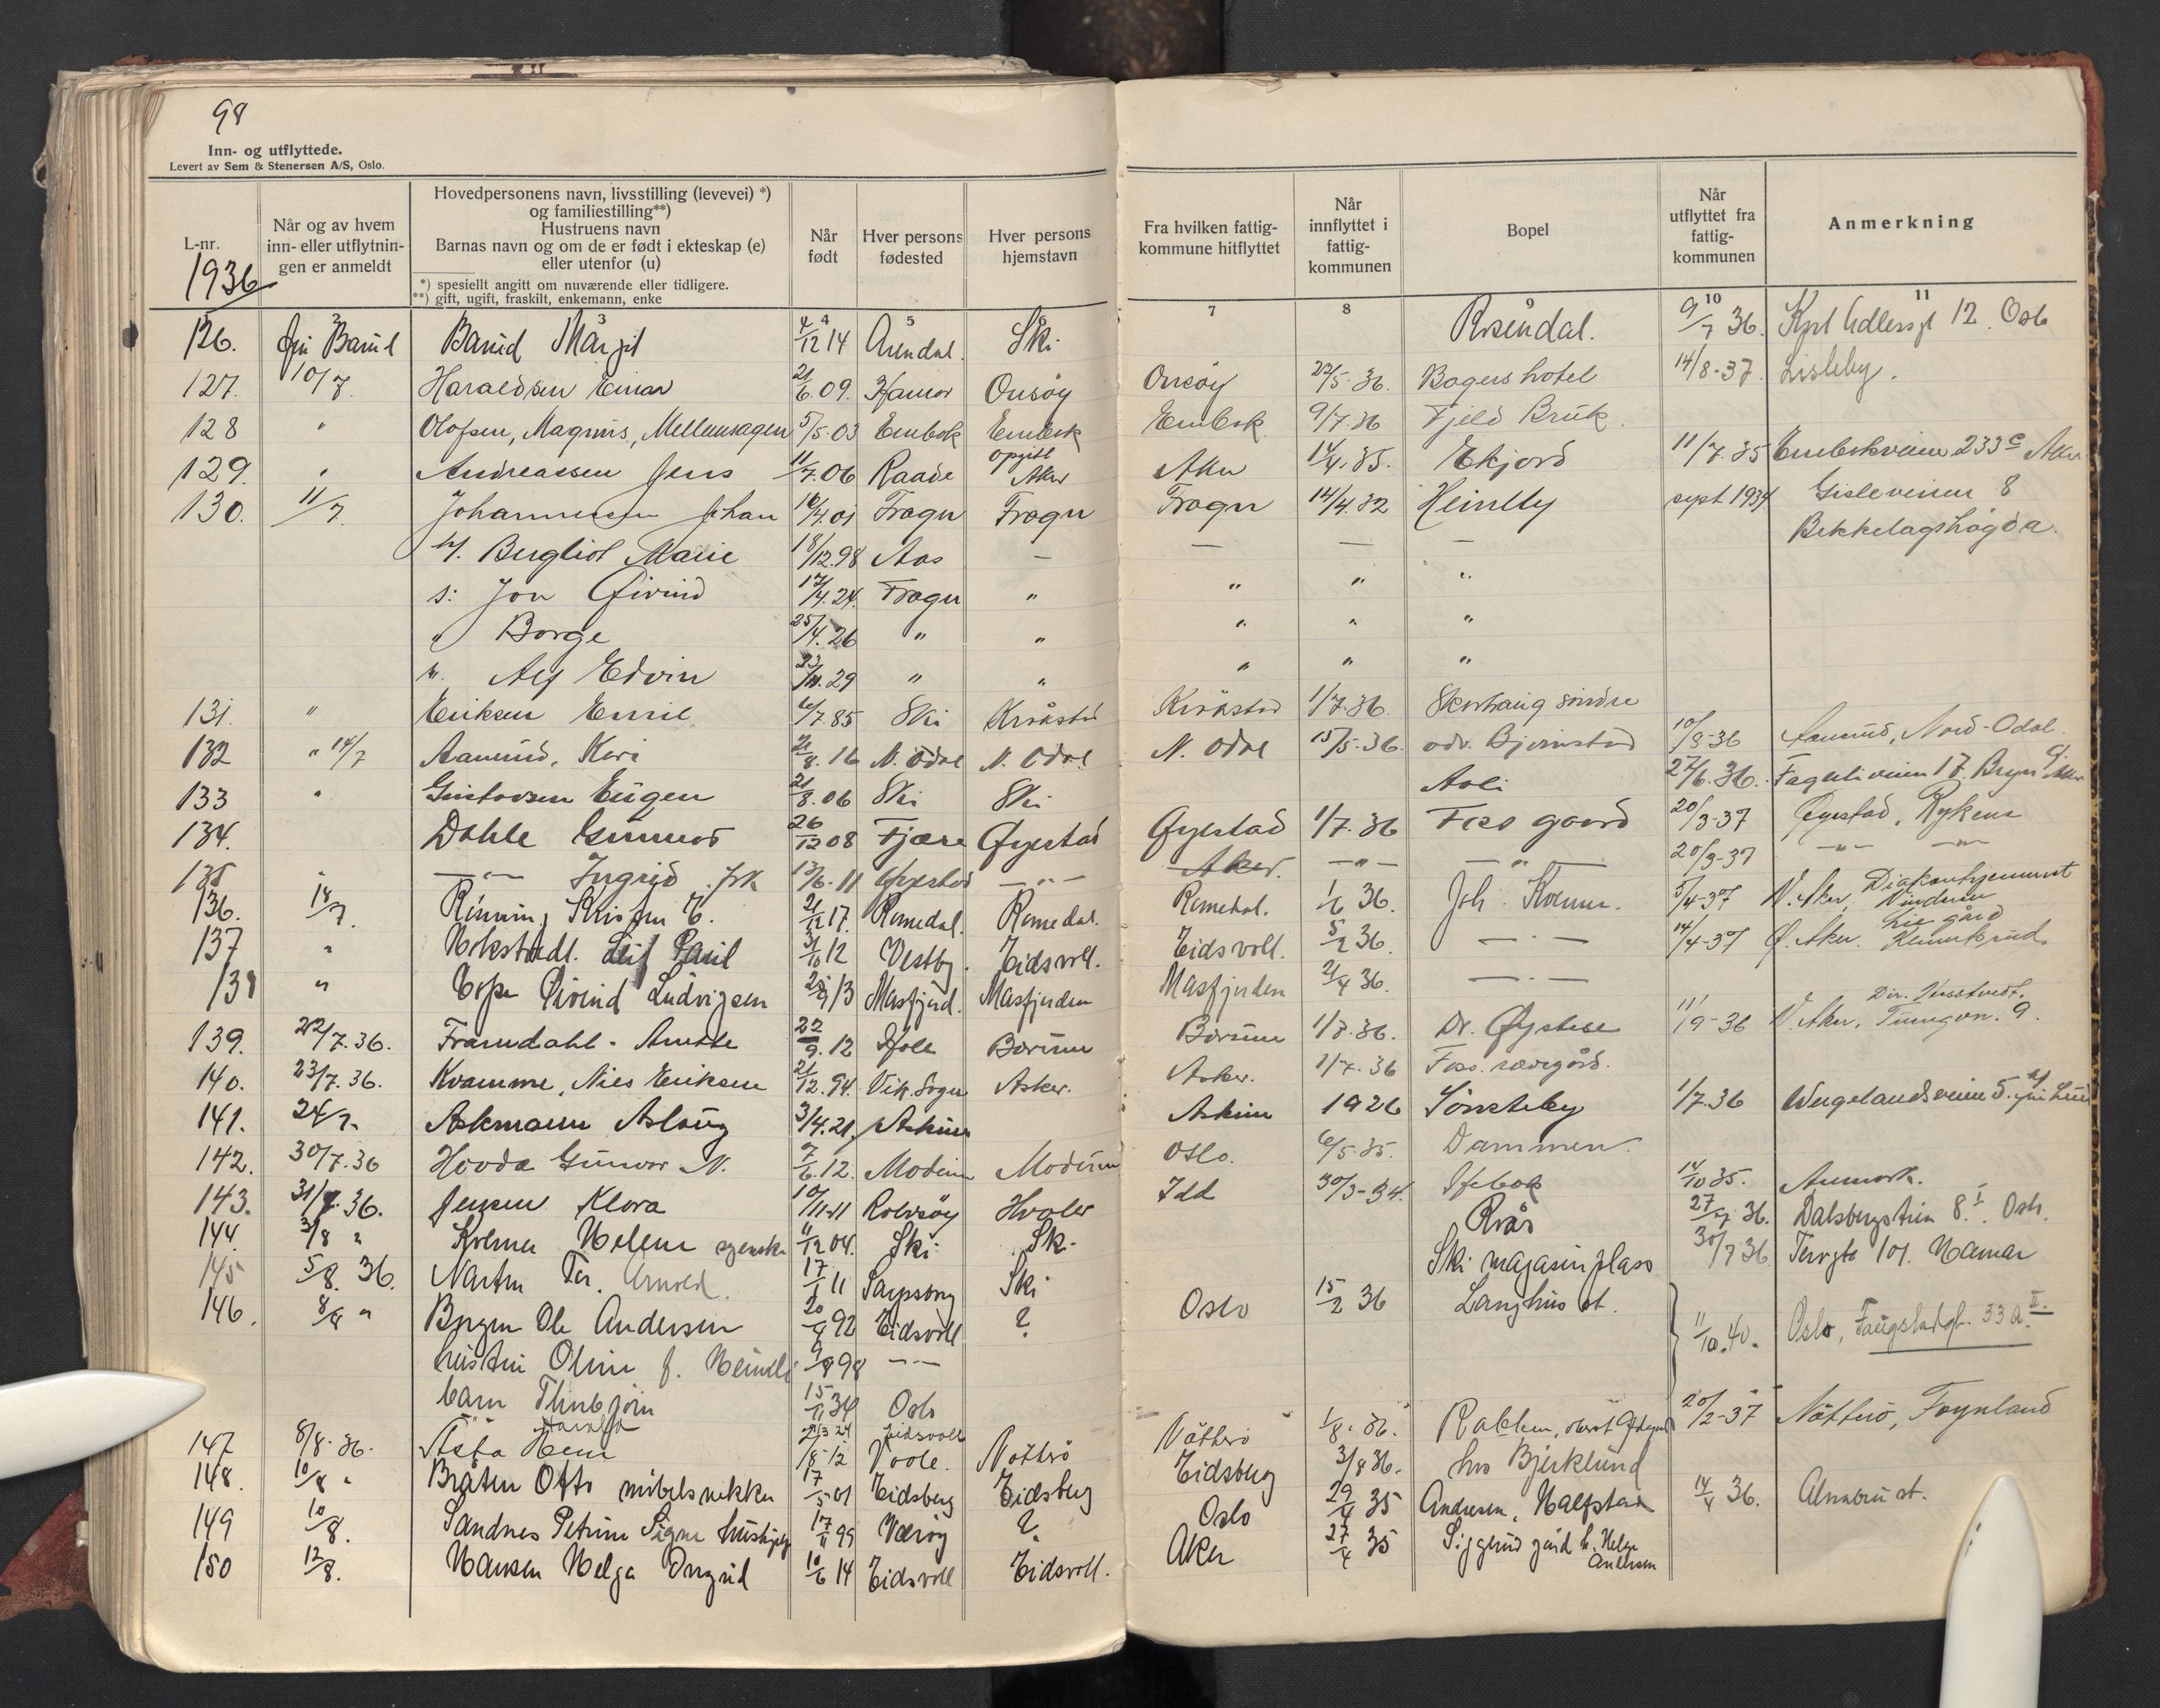 98
Inn- og utflyttede.
Levert av Sem & Stenersen A/S, Oslo.
L-nr.
1936
Når og av hvem inn- eller utflytnin- gen er anmeldt
Hovedpersonens navn, livsstilling (levevei) *) og familiestilling**)
Hustruens navn
Barnas navn og om de er født i ekteskap (e) eller utenfor (u)
*) spesiellt angitt om nuværende eller tidligere.
**) gift, ugift, fraskilt, enkemann, enke
Når født
Hver persons fødested
Hver persons hjemstavn
Fra hvilken fattig- kommune hitflyttet
Når innflyttet i fattig- kommunen
Bopel
Når utflyttet fra fattig- kommunen
Anmerkning
3 4 5 6 7 8 9 10 11
126. Margit 4/12 14 Arendal. Ski. Rosendal. 9/7 36. 12. Oslo
127. 10/7. Haraldsen Einar 21/6.09. Onsøy Onsøy 22/5.36. Bøgers hotel 14/8-37. Lisleby.
128 " Olofsen, Magnus, 5/5.03 Enebak Enebak Enebak 9/7.36 Fjeld Bruk.
129. " Andreassen Jens 11/7.06 Raade opgitt Aker Aker 14/4.35. Ekjord 11/7.35 Enebakveien 233c Aker
130. 11/7. Johannessen Johan 16/4.01 Frogn Frogn Frogn 14/4.32 Heimlly sept 1934 Gisleveien 8
Bekkelagshøgda.
H. Bergliot Marie 18/12.98 Aas — — — —
s: Jon Øivind 17/4.24. Frogn " " " "
" Borge 25/4.26 " " " " "
" Alf Edvin 23/11.29 " " " " "
131. " Eriksen Emil 6/7.85 Ski Kråkstad Kråkstad 1/7.36. Skorhaug søndre
132 " 14/7 Aamund, Kari 21/8.16 N. Odal N. Odal N. Odal 15/5-36. adv. Bjørnstad 10/8-36 Aamund, Nord-Odal.
133 " Gustavsen Eugen 21/8.06 Ski Ski Aoli 27/6.36. 17. Bryn Aker
134. Dahle Gunnar 26/12 08 Fjære Øyestad Øyestad 1/7.36 Foss gaard 20/3-37 Øyestad, Rykene
135 " —"— Ingrid 13/6-11 Øyestad —"— Aker. —"— —"— 20/3-37 —"— —"—
136. 14/7 Rønning Kristen E. 21/12 17. Romedal. Romedal. Romedal. 1/6 36. Joh. 5/4-37 V. Aker, Diakonhjemmet Vinderen
137 " Hokstadl. Leif Paul 31/10 12 Vestby. Eidsvoll. Eidsvoll. 5/2 36. — " — 14/4-37 Ø. Aker.
138 " Øivind Ludvigsen Masfjord. Masfjorden Masfjorden 21/4 36. — " —
139. 22/7.36. Framdahl - Anette 22/9.12 Hole Bærum Bærum 1/7.36. Dr. Øystese 11/9-36 V. Aker, Tuengen. 9.
140. 23/7.36. Kvamme, Nils Eriksen 21/12.94. Vik. Sogn Asker. Asker. 1/7.36 Foss. revegård.
141. 24/7. Askmann Aslaug 3/4.21. Askim Askim 1926 Sønsteby 1/7.36 Wergelandsveien 5.
142. 30/7.36 Hovda Gunvor N. 7/6.12. Modum Modum Oslo. 6/5.35. Dammen.
143. 31/7.36. Jensen Klara 10/11-11 Rolvsøy Hvaler Idd 30/3-34. 14/10 35. Aurmark.
144. 3/8 " Helene 11/12 04. Ski. Ski. Roås 27/7 36. Dalsbergstien 8. I. Oslo.
145 5/8. 36. Arnold. 17/1 11 Sarpsborg Ski Ski magasinplass 30/7 36 Torvgt. 101. Hamar
146. 8/8 " Ole Andersen 20/4 92 Eidsvoll ? Oslo 15/2 36 Langhus st. 11/10.40. Oslo, 33 a II.
hustru Oline f. 9/8 98 —"—
barn Thorbjørn 15/11 34 Oslo
Harald Eidsvoll
147 8/8.36. Asta 18/12 Nøtterø Nøtterø 1/8.36. 20/2-37 Nøtterø, Føynland
148. 10/8 " Bråten Otto møbelsnekker 17/5 01 Eidsberg Eidsberg Eidsberg 3/8 36. hos Bjerklund
149 10/8. Sandnes Petrine Signe hushjelp 17/11 99 Værøy ? Oslo 29/4 35 Andersen, Halfstad 14/4 36. Alnabru st.
150 12/8. Hansen Helga Ingrid 10/6 14 Eidsvoll Eidsvoll. Aker 27/4 35 Siggerud gård h. Helge Andersen